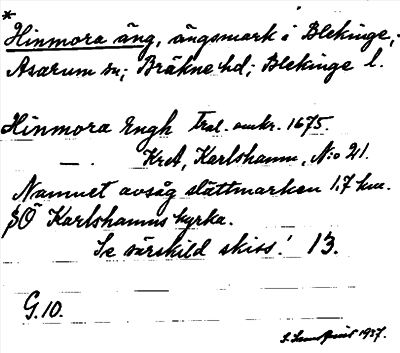 *
Hinmora äng, ängsmark i Blekinge,
Asarum sn; Bräkne hd; Blekinge l.
Hinmora Engh Trol. omkr. 1675.
— . KrA, Karlshamn, N:o 21.
Namnet avsåg slåttmarken 1,7 km.
SÖ Karlshamns kyrka.
Se särskild skiss! 13.
G.10.
1937.